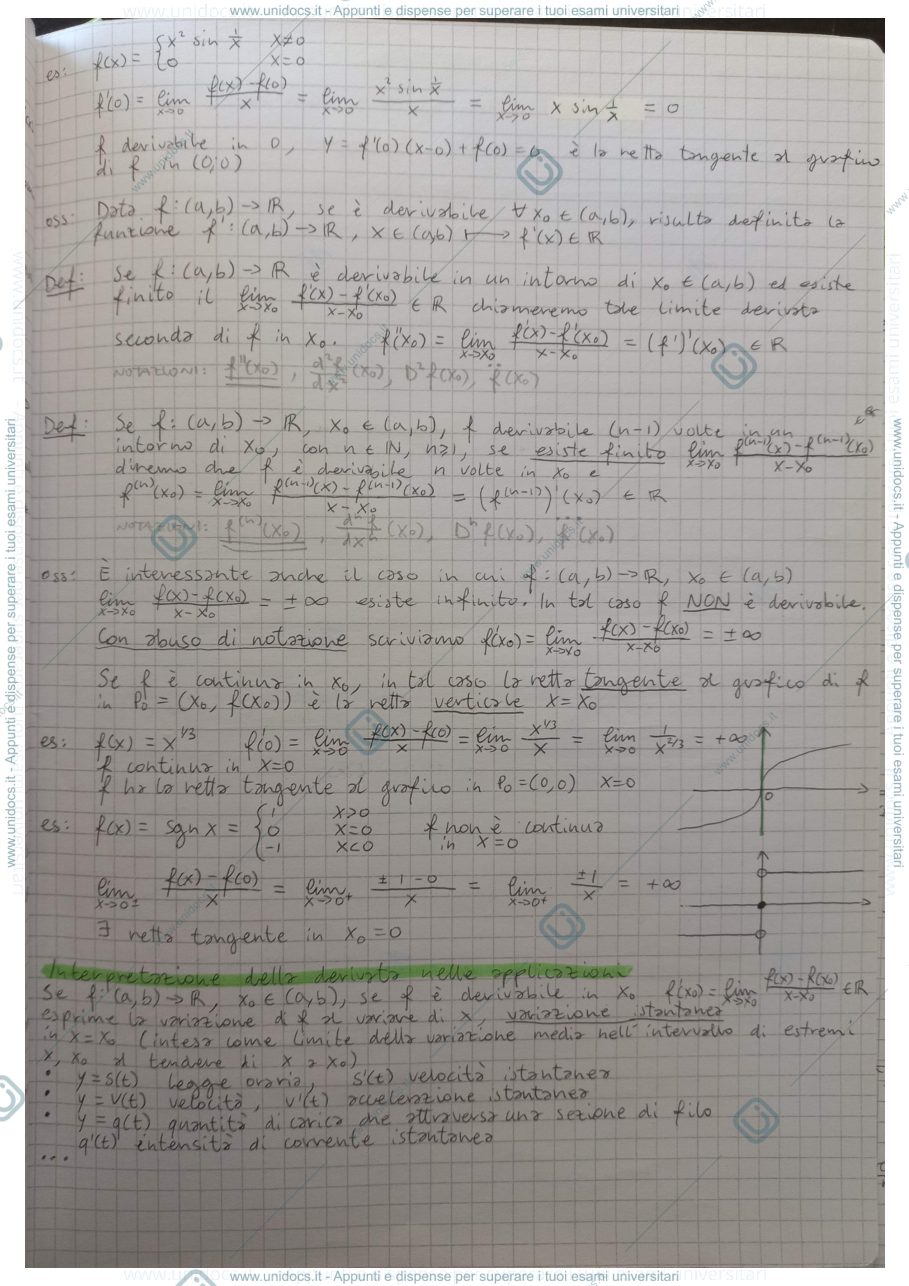 www.unidocs.it - Appunti e dispense per superare i tuoi esami universitari
es: f(x) = { x² sin 1/x x≠0
0 x=0
f'(0) = lim x→0 f(x)-f(0)/x = lim x→0 x² sin 1/x / x = lim x→0 x sin 1/x = 0
f derivabile in 0, y = f'(0)(x-0)+f(0) = 0 è la retta tangente al grafico
di f in (0;0)
oss: Data f:(a,b)→ℝ, se è derivabile ∀x₀∈(a,b), risulta definita la
funzione f':(a,b)→ℝ, x∈(a,b) ↦ f'(x)∈ℝ
Def: Se f:(a,b)→ℝ è derivabile in un intorno di x₀∈(a,b) ed esiste
finito il lim x→x₀ f'(x)-f'(x₀)/x-x₀ ∈ℝ chiameremo tale limite derivata
seconda di f in x₀. f''(x₀) = lim x→x₀ f'(x)-f'(x₀)/x-x₀ = (f')'(x₀) ∈ℝ
NOTAZIONI: f''(x₀), d²f/dx² (x₀), D²f(x₀), f̈(x₀)
Def: Se f:(a,b)→ℝ, x₀∈(a,b), f derivabile (n-1) volte in un
intorno di x₀, con n∈ℕ, n≥1, se esiste finito lim x→x₀ f⁽ⁿ⁻¹⁾(x)-f⁽ⁿ⁻¹⁾(x₀)/x-x₀
diremo che f è derivabile n volte in x₀ e
f⁽ⁿ⁾(x₀) = lim x→x₀ f⁽ⁿ⁻¹⁾(x)-f⁽ⁿ⁻¹⁾(x₀)/x-x₀ = (f⁽ⁿ⁻¹⁾)'(x₀) ∈ℝ
NOTAZIONI: f⁽ⁿ⁾(x₀), dⁿf/dxⁿ (x₀), Dⁿf(x₀), f(x₀)
oss: È interessante anche il caso in cui f:(a,b)→ℝ, x₀∈(a,b)
lim x→x₀ f(x)-f(x₀)/x-x₀ = ±∞ esiste infinito. In tal caso f NON è derivabile.
Con abuso di notazione scriviamo f'(x₀) = lim x→x₀ f(x)-f(x₀)/x-x₀ = ±∞
Se f è continua in x₀, in tal caso la retta tangente al grafico di f
in P₀ = (x₀, f(x₀)) è la retta verticale x=x₀
es: f(x) = x^1/3 f'(0) = lim x→0 f(x)-f(0)/x = lim x→0 x^1/3/x = lim x→0 1/x^2/3 = +∞
f continua in x=0
f ha la retta tangente al grafico in P₀=(0,0) x=0
0
es: f(x) = sgn x = { 1 x>0
0 x=0 f non è continua
-1 x<0 in x=0
lim x→0± f(x)-f(0)/x = lim x→0⁺ ±1-0/x = lim x→0⁺ ±1/x = +∞
∃ retta tangente in x₀=0
Interpretazione della derivata nelle applicazioni
Se f:(a,b)→ℝ, x₀∈(a,b), se f è derivabile in x₀ f'(x₀) = lim x→x₀ f(x)-f(x₀)/x-x₀ ∈ℝ
esprime la variazione di f al variare di x, variazione istantanea
in x=x₀ (intesa come limite della variazione media nell'intervallo di estremi
x, x₀ al tendere di x a x₀)
• y=s(t) legge oraria, s'(t) velocità istantanea
• y=v(t) velocità, v'(t) accelerazione istantanea
• y=q(t) quantità di carica che attraversa una sezione di filo
q'(t) intensità di corrente istantanea
...
www.unidocs.it - Appunti e dispense per superare i tuoi esami universitari
www.unidocs.it - Appunti e dispense per superare i tuoi esami universitari
www.unidocs.it - Appunti e dispense per superare i tuoi esami universitari